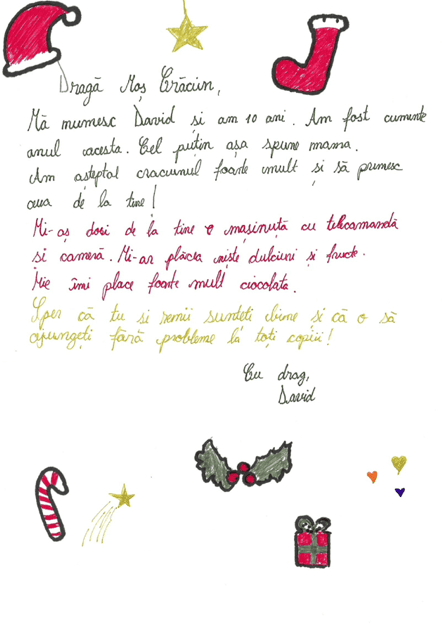 Dragă Moș Crăciun,
Mă numesc David și am 10 ani. Am fost cuminte
anul acesta. Cel puțin așa spune mama.
Am așteptat craciunul foarte mult și să primesc
ceva de la tine!
Mi-aș dori de la tine o mașinuță cu telecomandă
și cameră. Mi-ar plăcea niște dulciuri și fructe.
Mie îmi place foarte mult ciocolata.
Sper că tu si renii sunteti bine si că o să
ajungeți fără probleme la toți copiii!
Cu drag,
David